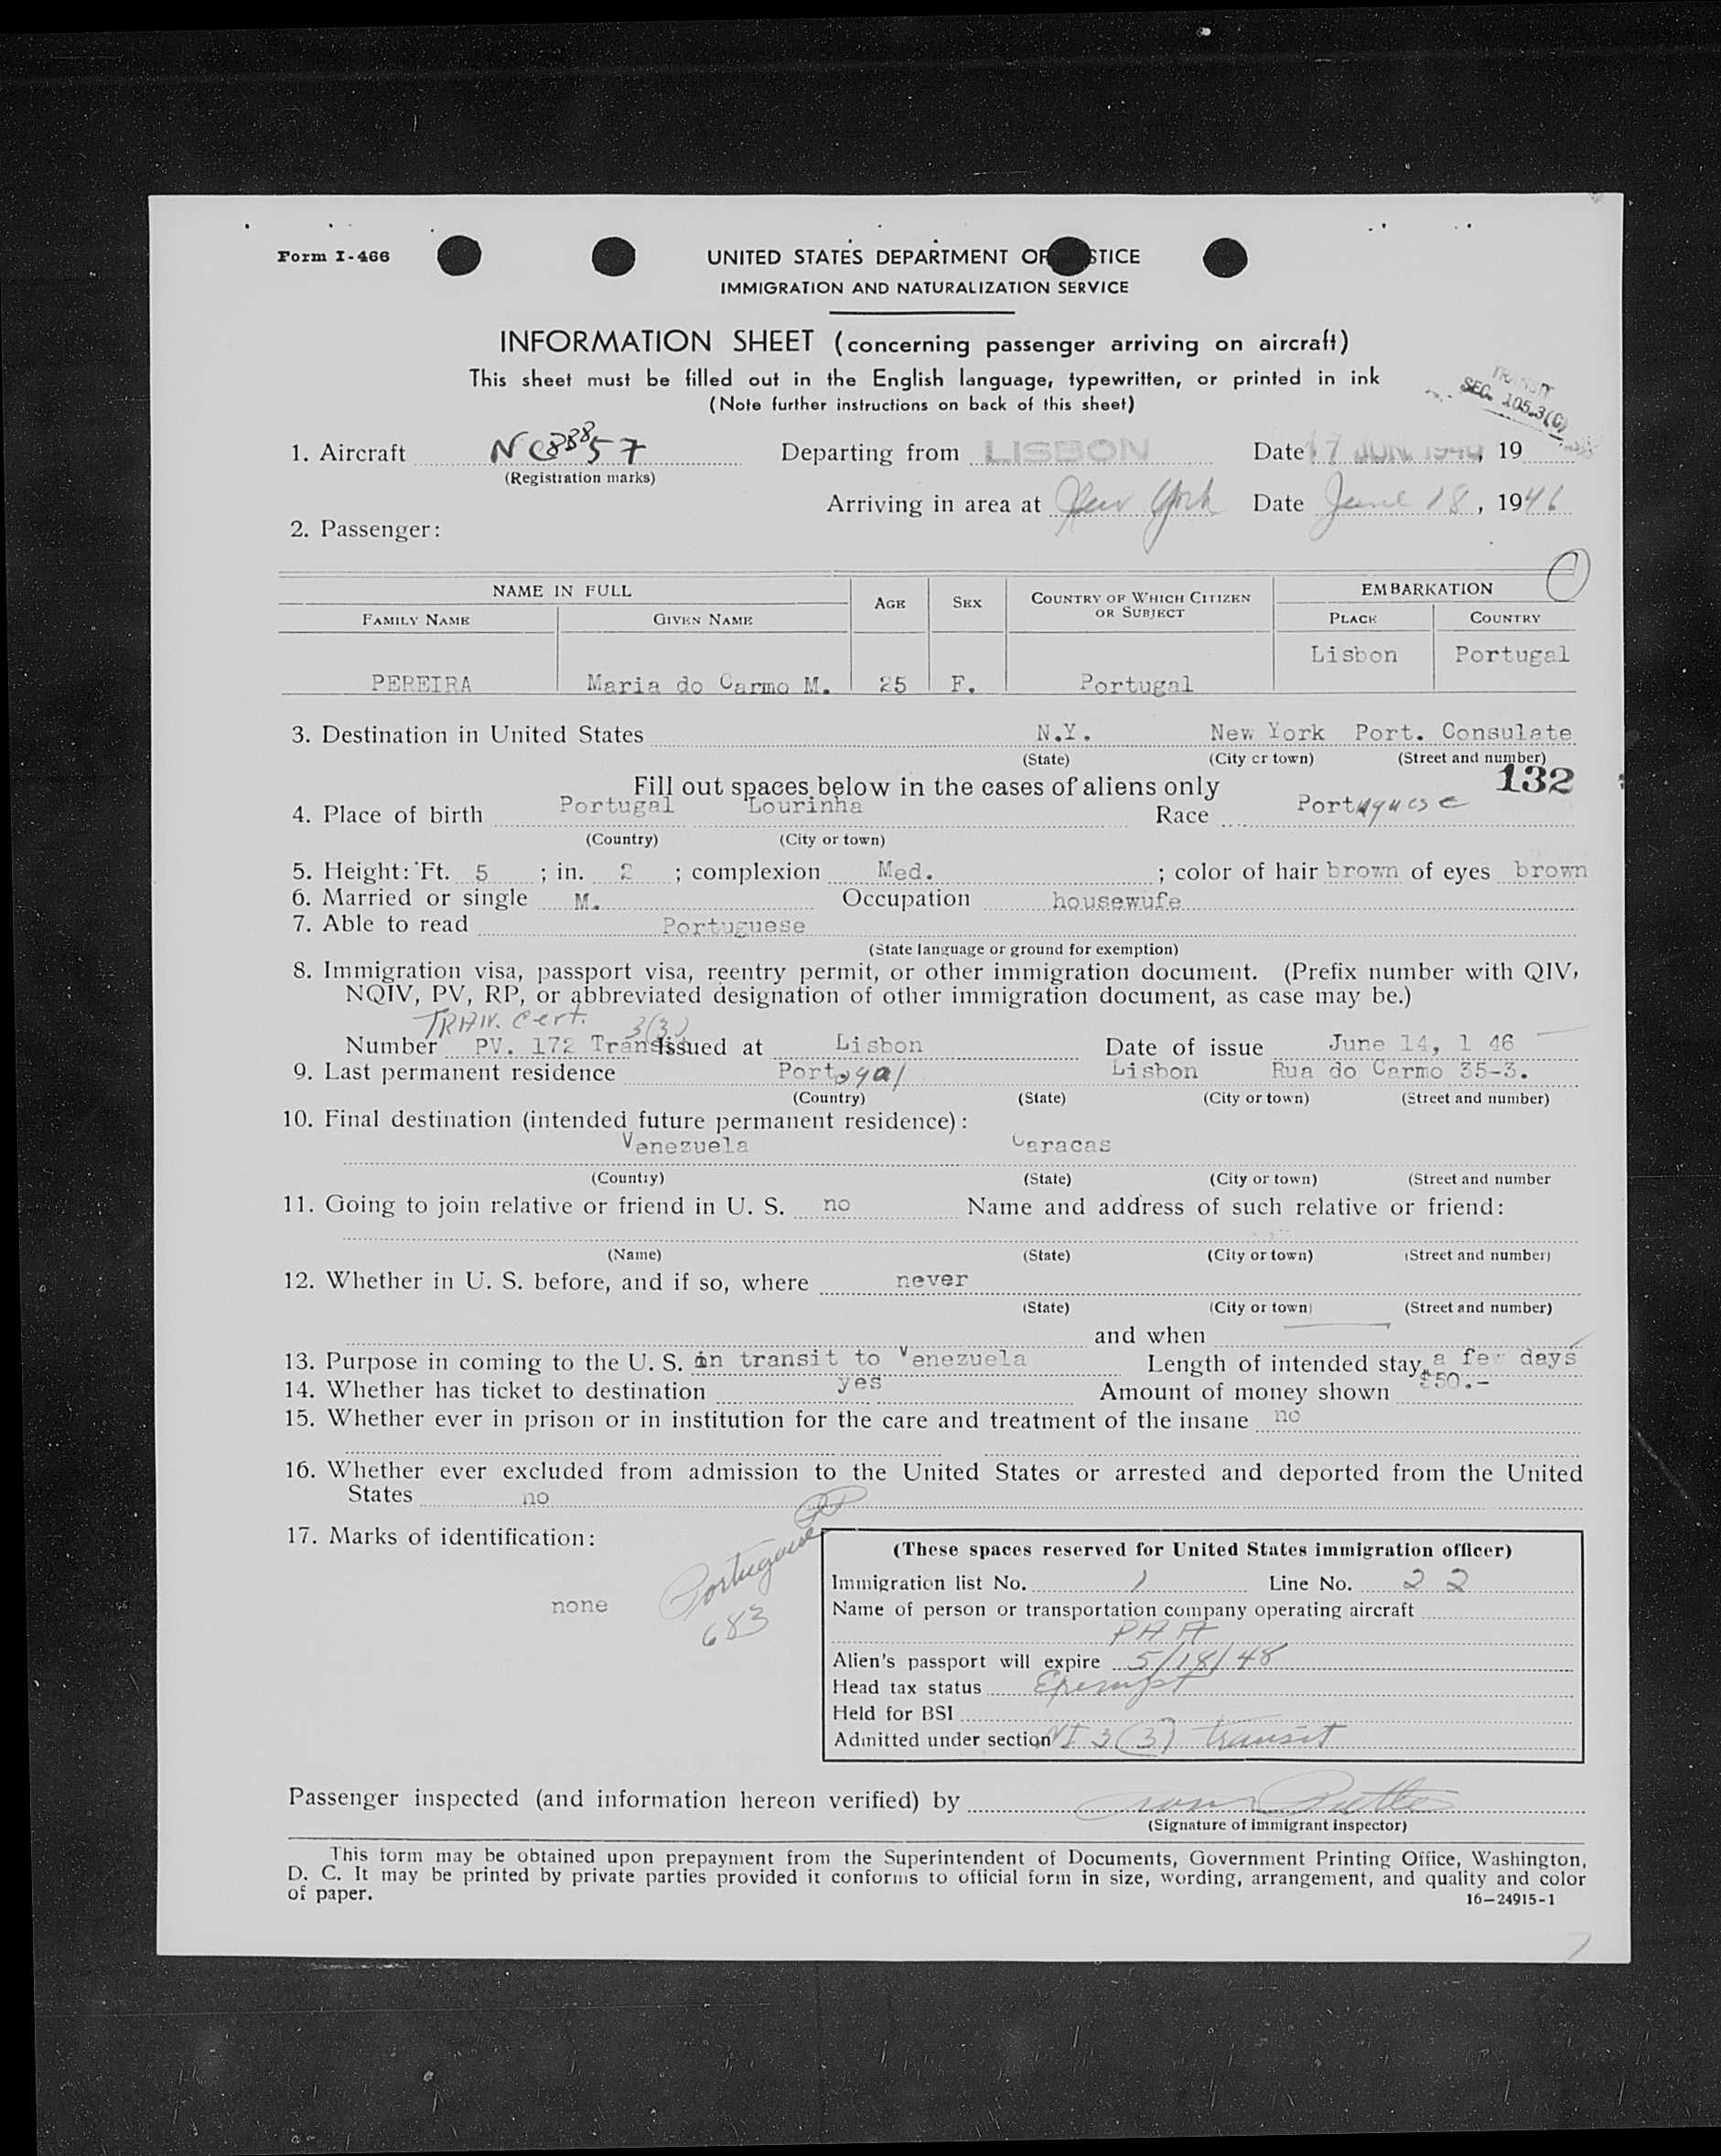 Form I-466
UNITED STATES DEPARTMENT OF STICE
IMMIGRATION AND NATURALIZATION SERVICE
INFORMATION SHEET (concerning passenger arriving on aircraft)
This sheet must be filled out in the English language, typewritten, or printed in ink
(Note further instructions on back of this sheet)
TRANSIT
SEC. 105.3(G)
1. Aircraft NC88857 Departing from LISBON Date 17 JUN 1946, 19
(Registration marks)
Arriving in area at New York Date June 18, 1946
2. Passenger:
NAME IN FULL AGE SEX COUNTRY OF WHICH CITIZEN OR SUBJECT EMBARKATION
FAMILY NAME GIVEN NAME PLACE COUNTRY
Lisbon Portugal
PEREIRA Maria do Carmo M. 25 F. Portugal
3. Destination in United States N.Y. New York Port. Consulate
(State) (City or town) (Street and number)
132
Fill out spaces below in the cases of aliens only
4. Place of birth Portugal Lourinha Race Portuguese
(Country) (City or town)
5. Height: Ft. 5 ; in. 2 ; complexion Med. ; color of hair brown of eyes brown
6. Married or single M. Occupation housewufe
7. Able to read Portuguese
(State language or ground for exemption)
8. Immigration visa, passport visa, reentry permit, or other immigration document. (Prefix number with QIV,
NQIV, PV, RP, or abbreviated designation of other immigration document, as case may be.)
TRAN. Cert. 3(3)
Number PV. 172 Transit Issued at Lisbon Date of issue June 14, 1 46
9. Last permanent residence Portugal Lisbon Rua do Carmo 35-3.
(Country) (State) (City or town) (Street and number)
10. Final destination (intended future permanent residence):
Venezuela Caracas
(Country) (State) (City or town) (Street and number
11. Going to join relative or friend in U. S. no Name and address of such relative or friend:
(Name) (State) (City or town) (Street and number)
12. Whether in U. S. before, and if so, where never
(State) (City or town) (Street and number)
and when
13. Purpose in coming to the U. S. in transit to Venezuela Length of intended stay a few days
14. Whether has ticket to destination yes Amount of money shown $50.-
15. Whether ever in prison or in institution for the care and treatment of the insane no
16. Whether ever excluded from admission to the United States or arrested and deported from the United
States no
17. Marks of identification:
none
Portuguese PP
683
(These spaces reserved for United States immigration officer)
Immigration list No. 1 Line No. 22
Name of person or transportation company operating aircraft
PAA
Alien's passport will expire 5/18/48
Head tax status Exempt
Held for BSI
Admitted under section NI 3(3) transit
Passenger inspected (and information hereon verified) by
(Signature of immigrant inspector)
This form may be obtained upon prepayment from the Superintendent of Documents, Government Printing Office, Washington,
D. C. It may be printed by private parties provided it conforms to official form in size, wording, arrangement, and quality and color
of paper.
16—24915-1